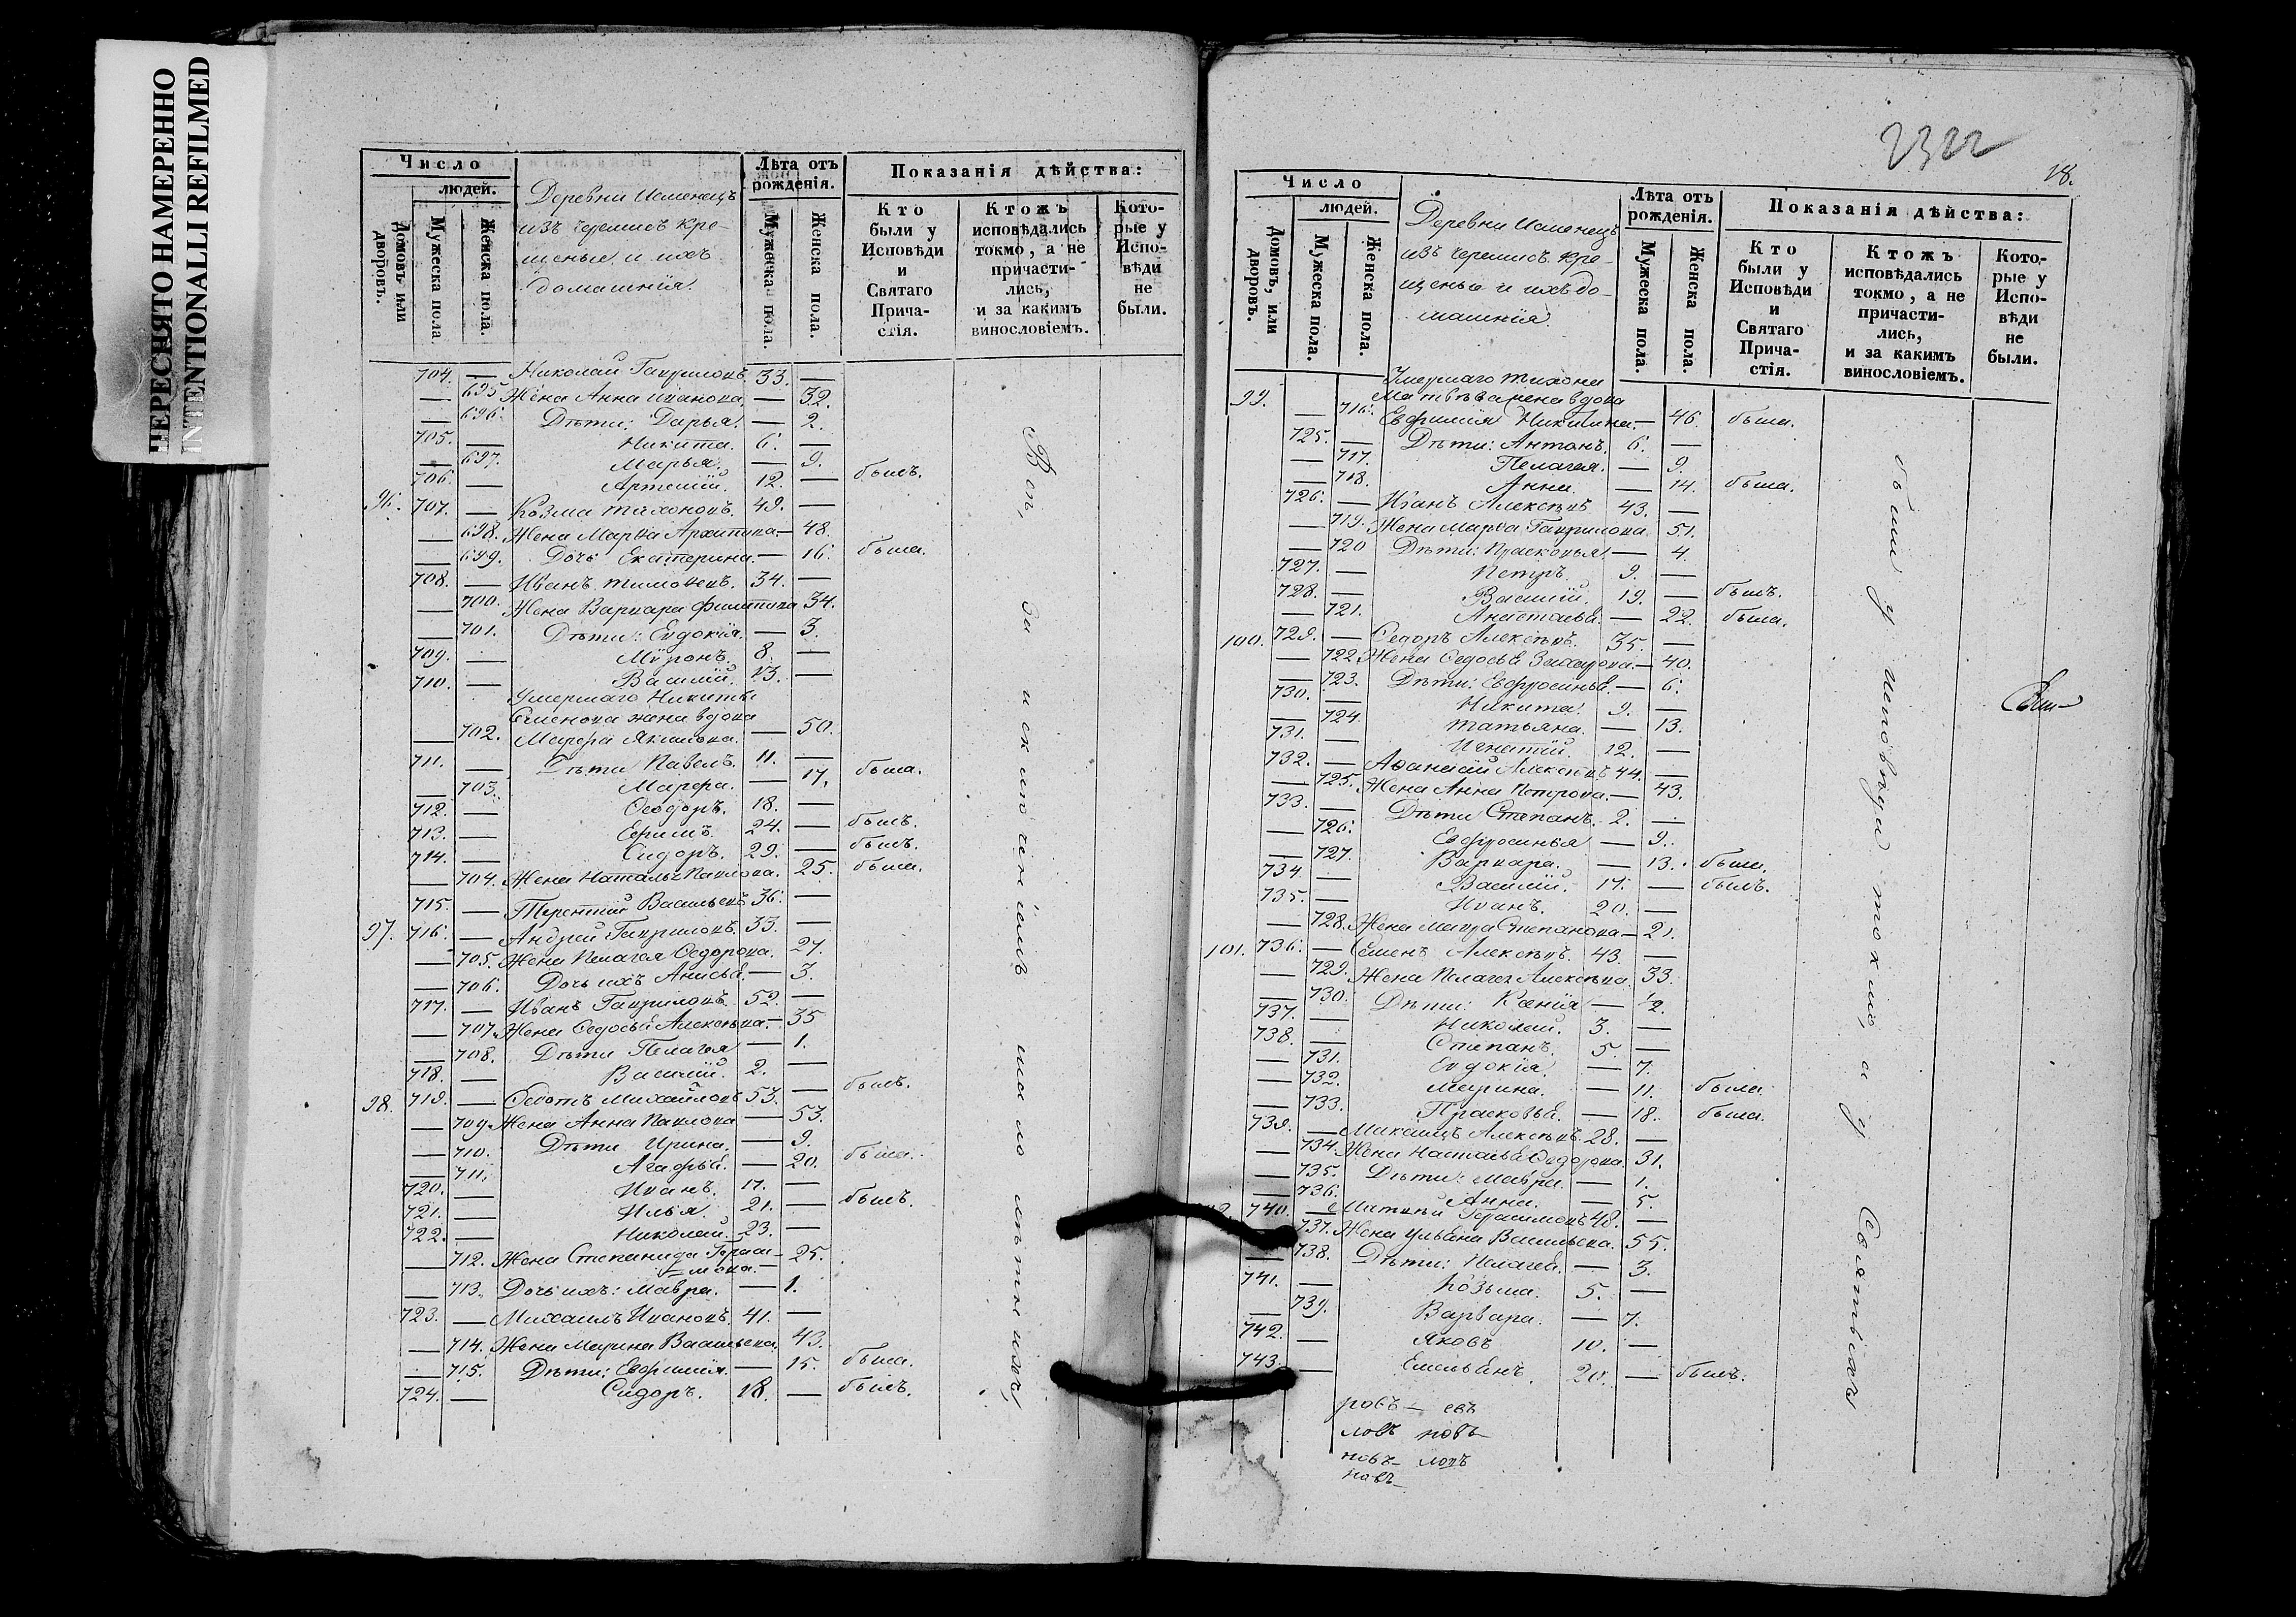 ПЕРЕСНЯТО НАМЕРЕННО
INTENTIONALLI REFILMED
Число
людей.
Домовъ или дворовъ.
Мужеска пола.
Женска пола.
Деревни Исменецъ
изъ черемисъ кре-
щеные и ихъ
домашнія.
Лѣта отъ рожденія.
Мужеска пола.
Женска пола.
Показанія дѣйства:
Кто были у Исповѣди и Святаго Прича-стія.
Ктожъ исповѣдались токмо, а не причасти-лись, и за какимъ винословіемъ.
Кото-рые у Испо-вѣди не были.
704. — Николай Гавриловъ. 33. —
— 695 Жена Анна Иванова — 32.
— 696. Дѣти: Дарья. — 2.
705. — Никита. 6. —
— 697. Марья. — 9.
706. — Артемій. 12. — былъ.
96. 707. — Козма Тихоновъ. 49. —
— 698. Жена Марѳа Архипова — 48.
— 699. Дочь Екатерина. — 16. была.
708. — Иванъ Тимоѳеевъ. 34. —
— 700. Жена Варвара Филиппова 34.
— 701. Дѣти: Евдокія. — 3.
709. — Миронъ. 8. —
710. — Василій. 13. —
Умершаго Никиты
Семенова жена вдова
— 702. Марфа Якимова. — 50.
711. — Дѣти Павелъ. 11. —
— 703. Марфа. — 17. была.
712. — Ѳеодоръ. 18. —
713. — Ефимъ. 24. — былъ.
714. — Сидоръ. 29. — былъ.
— 704. Жена Наталья Павлова. 25. была.
715. — Терентій Васильевъ 36. —
97. 716. — Андрей Гавриловъ. 33. —
— 705. Жена Пелагея Ѳедорова. 27.
— 706. Дочь ихъ Анисья. — 3.
717. — Иванъ Гавриловъ. 52. —
— 707. Жена Ѳедосья Алексѣева. — 35
— 708. Дѣти Пелагея — 1.
718. — Василій. 2. —
98. 719. — Ѳедотъ Михайловъ 53. — былъ.
— 709. Жена Анна Павлова — 53.
— 710. Дѣти Ирина. — 9.
— 711. Агафья. — 20. была.
720. — Иванъ. 17. —
721. — Илья. 21. — былъ.
722. — Николай. 23. —
— 712. Жена Степанида Гераси-
мова. — 25.
— 713. Дочь ихъ: Мавра. — 1.
723. — Михаилъ Ивановъ. 41. —
— 714. Жена Марина Васильева. 43.
— 715. Дѣти: Евфимія. — 15. была.
724. — Сидоръ. 18. — былъ.
Всѣ, за исключеніемъ малолѣтнихъ,
2322
18.
Число
людей.
Домовъ, или дворовъ.
Мужеска пола.
Женска пола.
Деревни Исменецъ
изъ черемисъ кре-
щеные и ихъ до-
машнія.
Лѣта отъ рожденія.
Мужеска пола.
Женска пола.
Показанія дѣйства:
Кто были у Исповѣди и Святаго Прича-стія.
Ктожъ исповѣдались токмо, а не причасти-лись, и за какимъ винословіемъ.
Кото-рые у Испо-вѣди не были.
Умершаго Тихона
Матвѣева жена вдова
99. — 716. Евфимія Никитина. — 46. была.
725. — Дѣти: Антонъ. 6. —
— 717. Пелагея. — 9.
— 718. Анна. — 14. была.
726. — Иванъ Алексѣевъ. 43. —
— 719. Жена Марѳа Гаврилова. 51.
— 720 Дѣти: Прасковья. — 4.
727. — Петръ. 9. —
728. — Василій. 19. — былъ.
— 721. Анастасья. — 22. была.
100. 729. — Ѳедоръ Алексѣевъ. 35. —
— 722. Жена Ѳедосья Захарова. — 40.
— 723. Дѣти: Евфросинья. — 6.
730. — Никита. 9. —
— 724. Татьяна. — 13.
731. — Игнатій. 12. —
732. — Аѳанасій Алексѣевъ 44. —
— 725. Жена Анна Петрова. — 43.
733. — Дѣти Степанъ. 2. —
— 726. Евфросинья — 9.
— 727. Варвара. — 13. была.
734. — Василій. 17. — былъ.
735. — Иванъ. 20. —
— 728. Жена Мавра Степанова — 21.
101. 736. — Семенъ Алексѣевъ. 43. —
— 729. Жена Пелагея Алексѣева. 33.
— 730. Дѣти: Ксенія — 1/2.
737. — Николай. 3. —
738. — Степанъ. 5. —
— 731. Евдокія. — 7.
— 732. Марина. — 11. была.
— 733. Прасковья. — 18. была.
739. — Максимъ Алексѣевъ. 28. —
— 734. Жена Наталья Ѳедорова. 31.
— 735. Дѣти: Мавра. — 1.
— 736. Анна. — 5.
740. — Герасимовъ 48. —
— 737. Жена Ульяна Васильева. 55.
— 738. Дѣти: Пелагея. — 3.
741. — Козьма. 5. —
— 739. Варвара. — 7.
742. — Яковъ 10. —
743. — Емельянъ. 20. — былъ.
ровъ — евъ
ловъ новъ
новъ — ловъ
новъ —
были у исповѣди токмо, а у Святыхъ